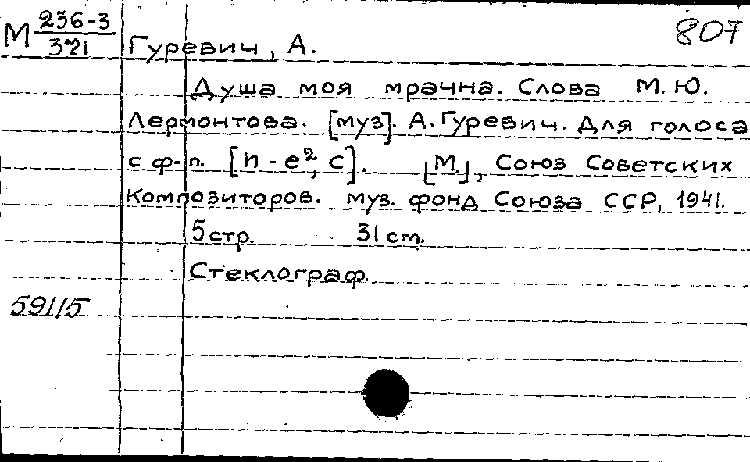 М 236-3
321
807
Гуревич, А.
Душа моя мрачна. Слова М.Ю.
Лермонтова. [муз]. А. Гуревич. Для голоса
с ф-п. [h - e², c]. [М.], Союз Советских
Композиторов. муз. фонд Союза ССР, 1941.
5 стр. 31 ст.
Стеклограф.
59115